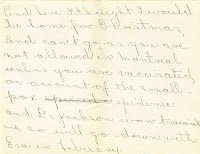 And here I thought I would
be home for Christmas.
And can't go as you are
not allowed in Montreal
unless you are vaccinated
on account of the small-
pox epidemic
and Dr Jackson won't
me so will go down with
in February